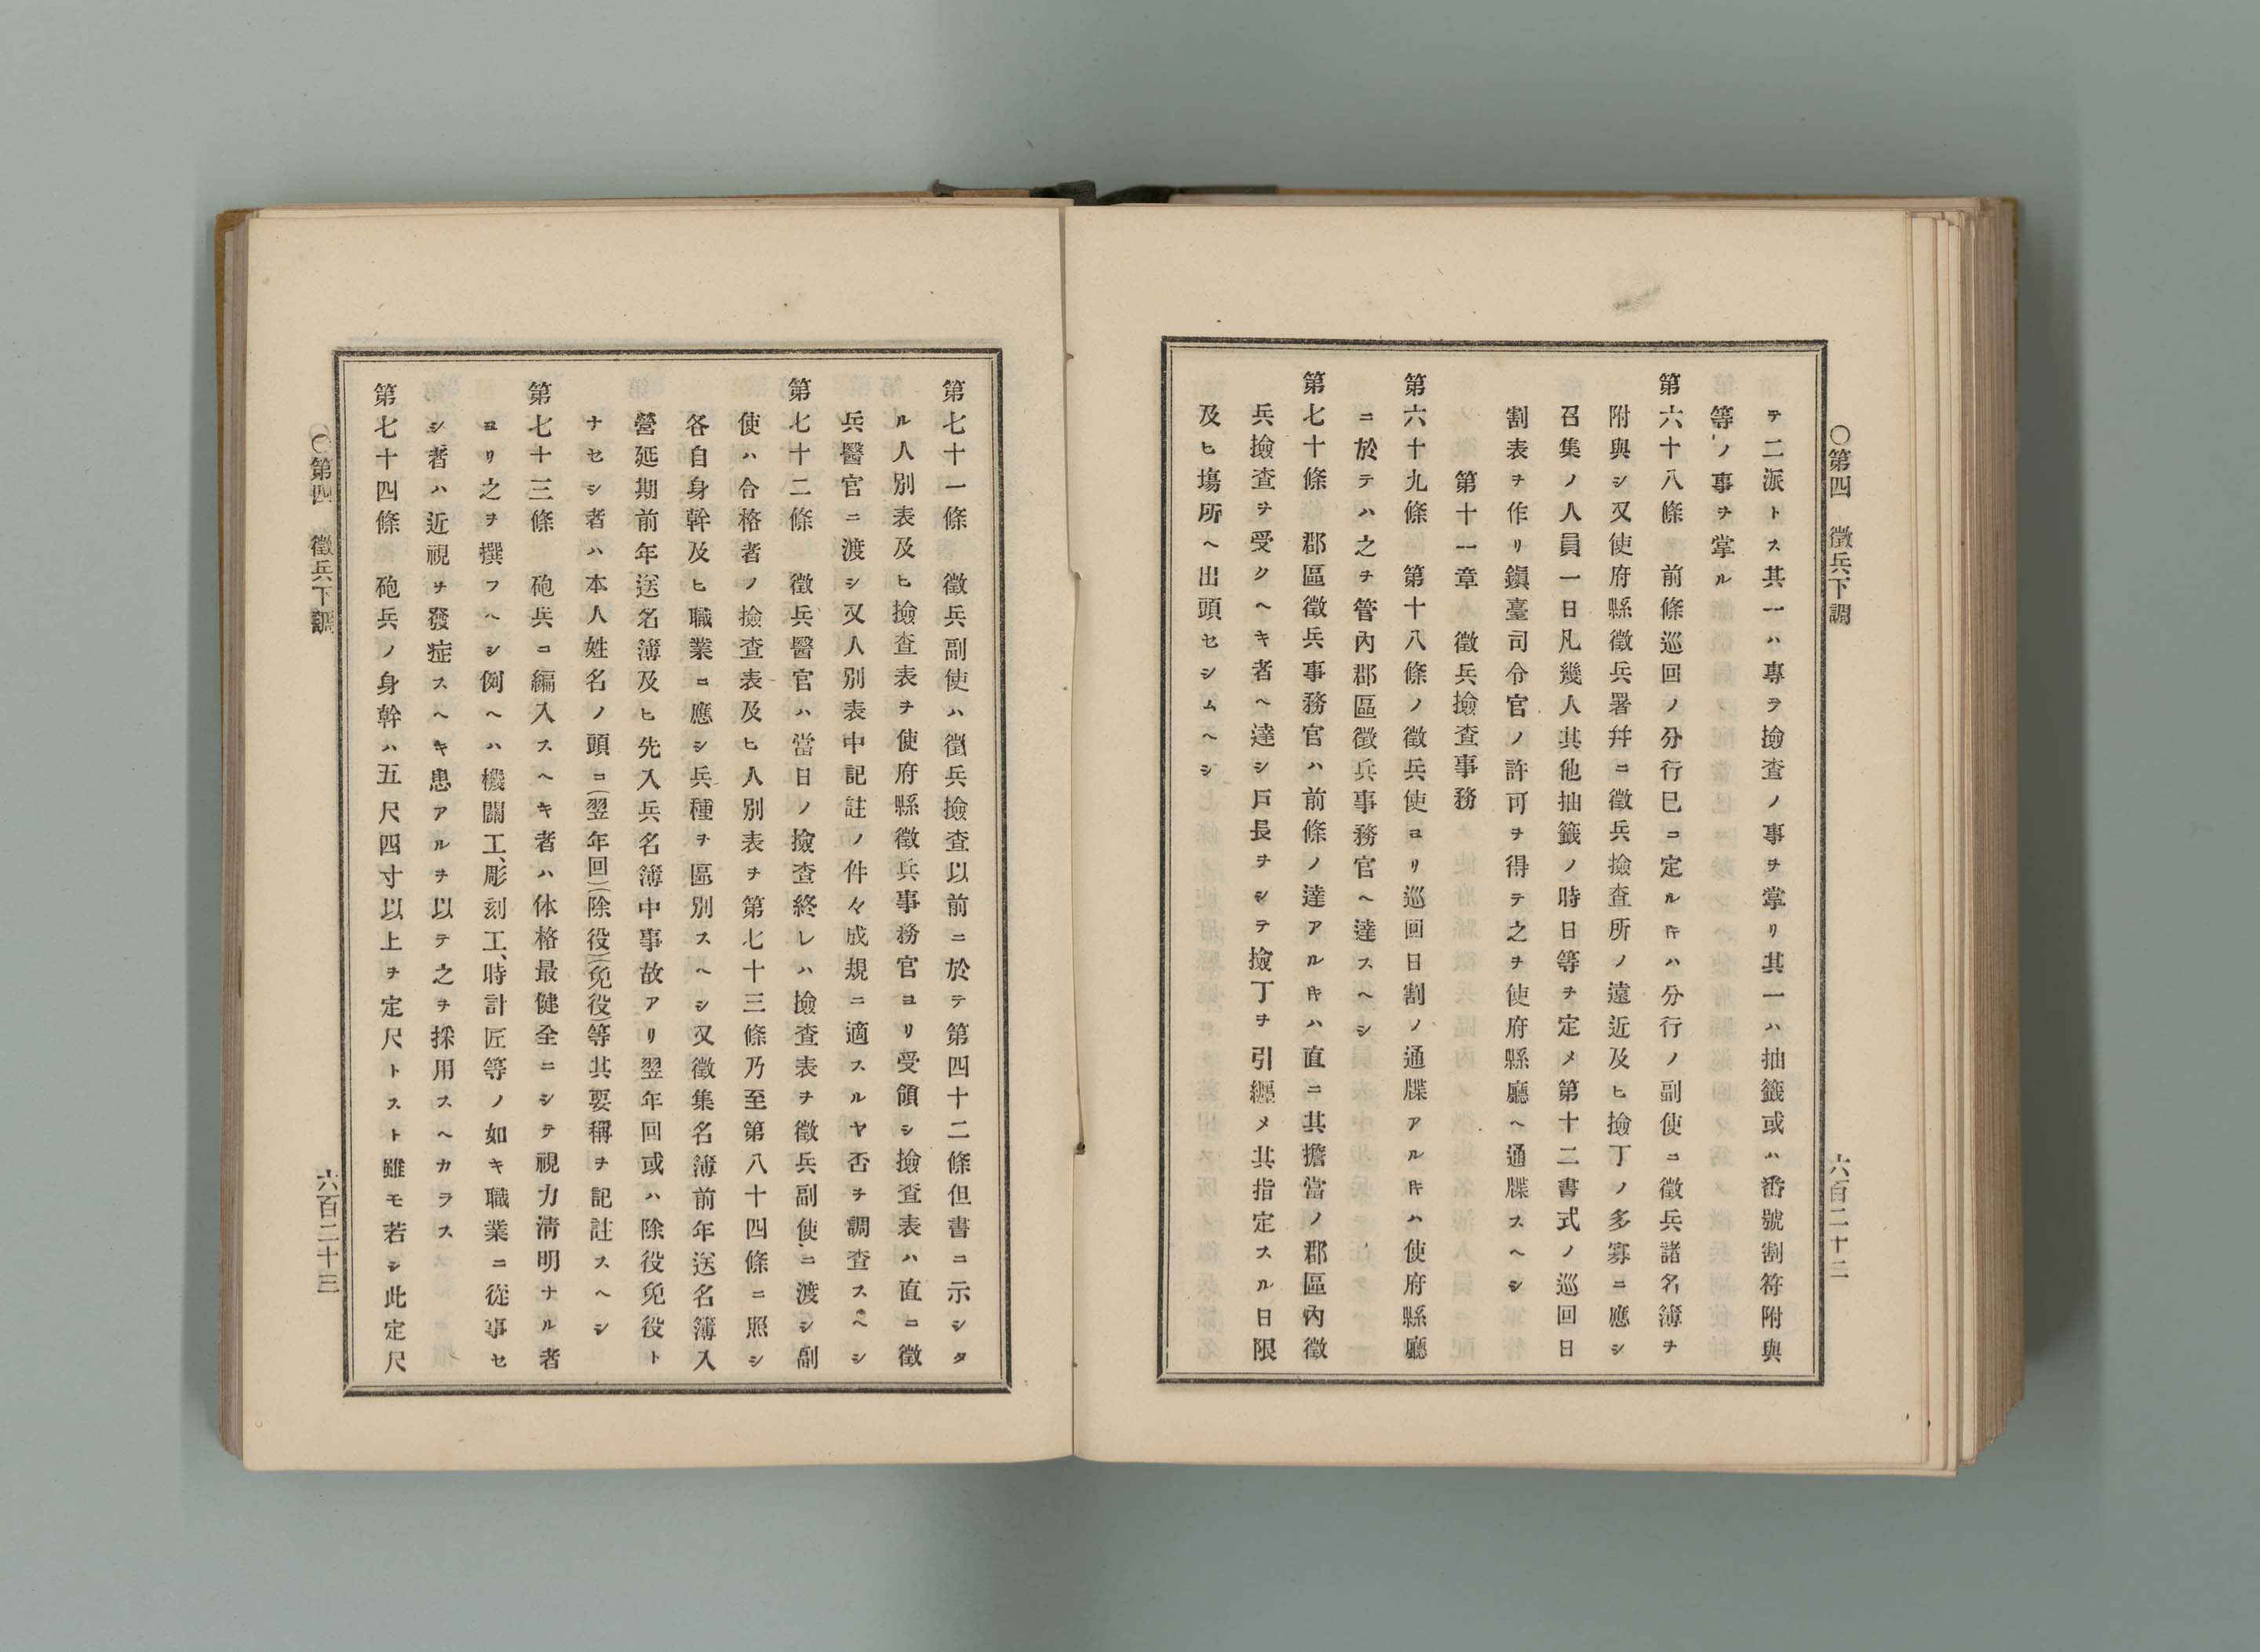 〇第四　徵兵下調
六百二十二
テ二派トス其一ハ專ラ撿査ノ事ヲ掌リ其一ハ抽籤或ハ番號割符附與
等ノ事ヲ掌ル
第六十八條　前條巡回ノ分行已ニ定ルキハ分行ノ副使ニ徵兵諸名簿ヲ
附與シ又使府縣徵兵署幷ニ徵兵撿査所ノ遠近及ヒ撿丁ノ多寡ニ應シ
召集ノ人員一日凡幾人其他抽籤ノ時日等ヲ定メ第十二書式ノ巡回日
割表ヲ作リ鎭臺司令官ノ許可ヲ得テ之ヲ使府縣廳ヘ通牒スヘシ
第十一章　徵兵撿査事務
第六十九條　第十八條ノ徵兵使ヨリ巡回日割ノ通牒アルキハ使府縣廳
ニ於テハ之ヲ管內郡區徵兵事務官ヘ達スヘシ
第七十條　郡區徵兵事務官ハ前條ノ達アルキハ直ニ其擔當ノ郡區內徵
兵撿査ヲ受クヘキ者ヘ達シ戶長ヲシテ撿丁ヲ引纏メ其指定スル日限
及ヒ塲所ヘ出頭セシムヘシ
第七十一條　徵兵副使ハ徵兵撿査以前ニ於テ第四十二條但書ニ示シタ
ル人別表及ヒ撿査表ヲ使府縣徵兵事務官ヨリ受領シ撿査表ハ直ニ徵
兵醫官ニ渡シ又人別表中記註ノ件々成規ニ適スルヤ否ヲ調查スヘシ
第七十二條　徵兵醫官ハ當日ノ撿査終レハ撿査表ヲ徵兵副使ニ渡シ副
使ハ合格者ノ撿査表及ヒ人別表ヲ第七十三條乃至第八十四條ニ照シ
各自身幹及ヒ職業ニ應シ兵種ヲ區別スヘシ又徵集名簿前年送名簿入
營延期前年送名簿及ヒ先入兵名簿中事故アリ翌年回或ハ除役免役ト
ナセシ者ハ本人姓名ノ頭ニ(翌年回)(除役)(免役)等其要稱ヲ記註スヘシ
第七十三條　砲兵ニ編入スヘキ者ハ体格最健全ニシテ視力淸明ナル者
ヨリ之ヲ撰フヘシ例ヘハ機關工、彫刻工、時計匠等ノ如キ職業ニ從事セ
シ者ハ近視ヲ發症スヘキ患アルヲ以テ之ヲ採用スヘカラス
第七十四條　砲兵ノ身幹ハ五尺四寸以上ヲ定尺トスト雖モ若シ此定尺
〇第四　徵兵下調
六百二十三